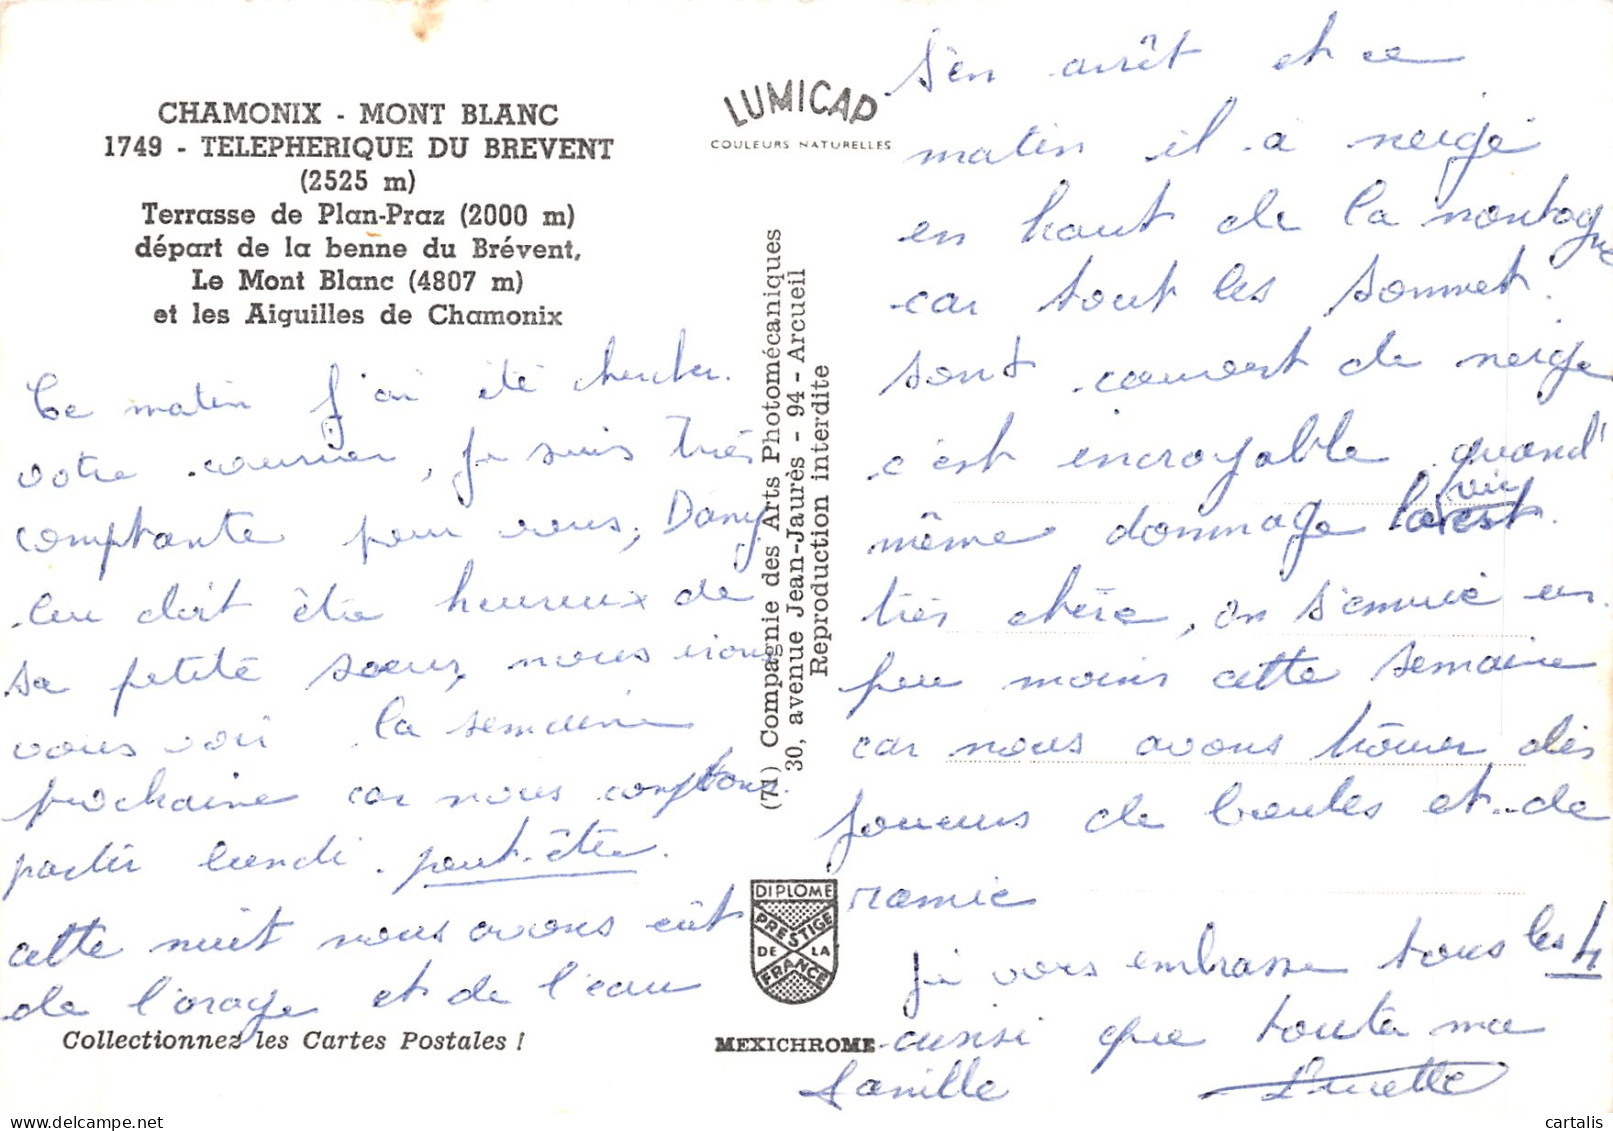 CHAMONIX - MONT BLANC
1749 - TELEPHERIQUE DU BREVENT
(2525 m)
Terrasse de Plan-Praz (2000 m)
départ de la benne du Brévent,
Le Mont Blanc (4807 m)
et les Aiguilles de Chamonix
Ce matin j'ai été chercher.
votre courrier, je suis très
comptante pour vous, Dany
Lou doit être heureux de
sa petite soeur, nous irons
vous voir la semaine
prochaine car nous comptons
partir lundi. peut-être.
cette nuit nous avons eût
de l'orage et de l'eau
Collectionnez les Cartes Postales !
LUMICAP
COULEURS NATURELLES
(71) Compagnie des Arts Photomécaniques
30, avenue Jean-Jaurès - 94 - Arcueil
Reproduction interdite
DIPLOME
PRESTIGE
DE LA
FRANCE
MEXICHROME
S'en arrêt et ce
matin il a neigé
en haut de la montagne
car tout les sommet.
sont couvert de neige
c'est incroyable quand
même dommage la vie est
très chère, on s'ennuie un
peu moins cette semaine
car nous avons trouver des
joueurs de boules et de
ramie
Je vous embrasse tous les 4
ainsi que toute ma
famille Lucette
cartalis